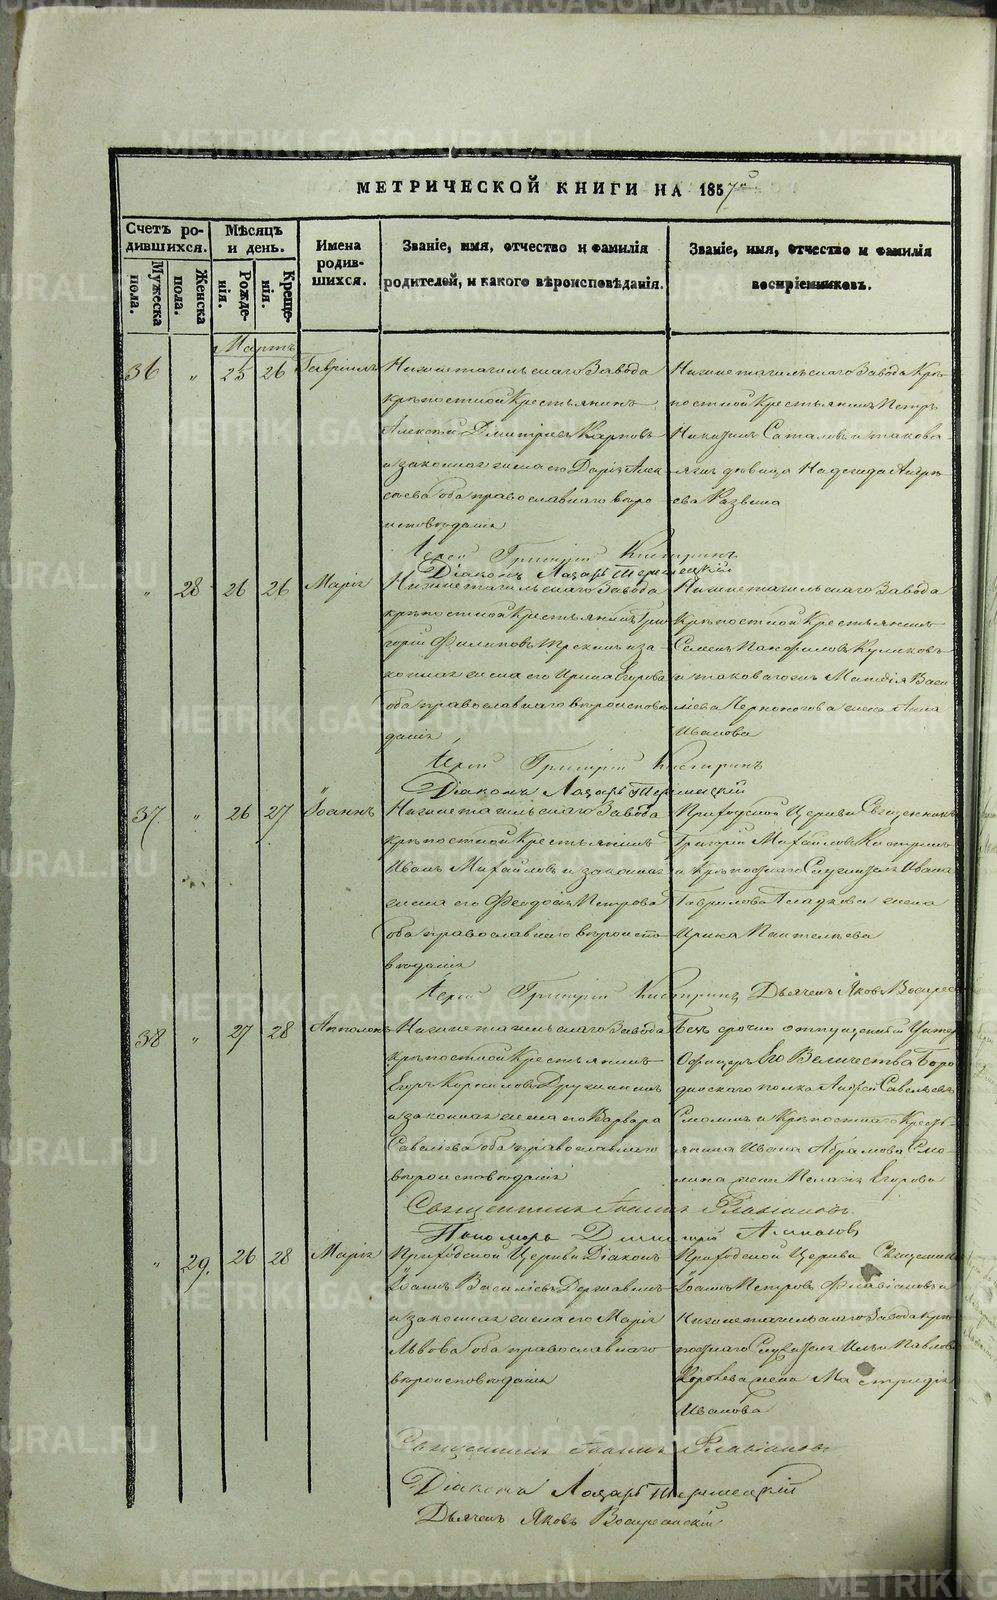 МЕТРИЧЕСКОЙ КНИГИ НА 1857й
Счетъ ро-
дившихся.
Мужеска
пола.
Женска
пола.
Мѣсяцъ
и день.
Рожде-
нія.
Креще-
нія.
Имена
родив-
шихся.
Званіе, имя, отчество и фамилія
родителей, и какого вѣроисповѣданія.
Званіе, имя, отчество и фамилія
воспріемниковъ.
Мартъ
36 „ 25 26 Гавріилъ
Нижнетагильскаго Завода
крѣпостной Крестьянинъ
Алексѣй Дмитріевъ Карповъ
и законная жена его Дарія Алек
сѣева оба православнаго вѣро
исповѣданія
Нижнетагильскаго Завода Крѣ
постной Крестьянинъ Петръ
Никитинъ Саталовъ и такова
дѣвица Надежда Андрѣ
ева
Іерей Григорій Кастринъ
Діаконъ Лазарь
„ 28 26 26 Марія
Нижнетагильскаго Завода
крѣпостной Крестьянинъ Гри
горій Филиповъ и за
конная жена его Ирина Егорова
оба православнаго вѣроисповѣ
данія
Нижнетагильскаго Завода
Крѣпостной Крестьянинъ
Семенъ Панфиловъ Куликовъ
и таковагожъ Васи
ліева Черноногова жена Анна
Иванова
Іерей Григорій Кастринъ
Діаконъ Лазарь
37 „ 26 27 Іоаннъ
Нижнетагильскаго Завода
крѣпостной Крестьянинъ
Иванъ Михайловъ и законная
жена его Феодосія Петрова
оба православнаго вѣроиспо
вѣданія
Приходской Церкви Священникъ
Григорій Михайловъ Кастринъ
и Крѣпостнаго Служителя Ивана
Гаврилова Гладкова жена
Ирина Пантелѣева
Іерей Григорій Кастринъ Дьячекъ Яковъ Воскресен
38 „ 27 28 Апполонъ
Нижнетагильскаго Завода
крѣпостной Крестьянинъ
Егоръ Корниловъ Дружининъ
и законная жена его Варвара
Савеліева оба православнаго
вѣроисповѣданія
Безсрочно отпущенный Унтеръ
Офицеръ Его Величества Боро
динскаго полка Андрей Савельевъ
Смолинъ и Крѣпостнаго Кресть-
янина Ивана Абрамова Смо
лина жена Пелагія Егорова
Священникъ Іоаннъ Флавіановъ
Пономарь Димитрій
„ 29. 26 28 Марія
Приходской Церкви Діаконъ
Іоаннъ Василіевъ Державинъ
и законная жена его Марія
Львова оба православнаго
вѣроисповѣданія
Приходской Церкви Священникъ
Іоаннъ Петровъ Флавіановъ и
Нижнетагильскаго Завода крѣ
постнаго Служителя Ильи Павлова
жена
Иванова
Священникъ Іоаннъ Флавіановъ
Діаконъ Лазарь
Дьячекъ Яковъ Воскресенскій
METRIKI.GASO-URAL.RU